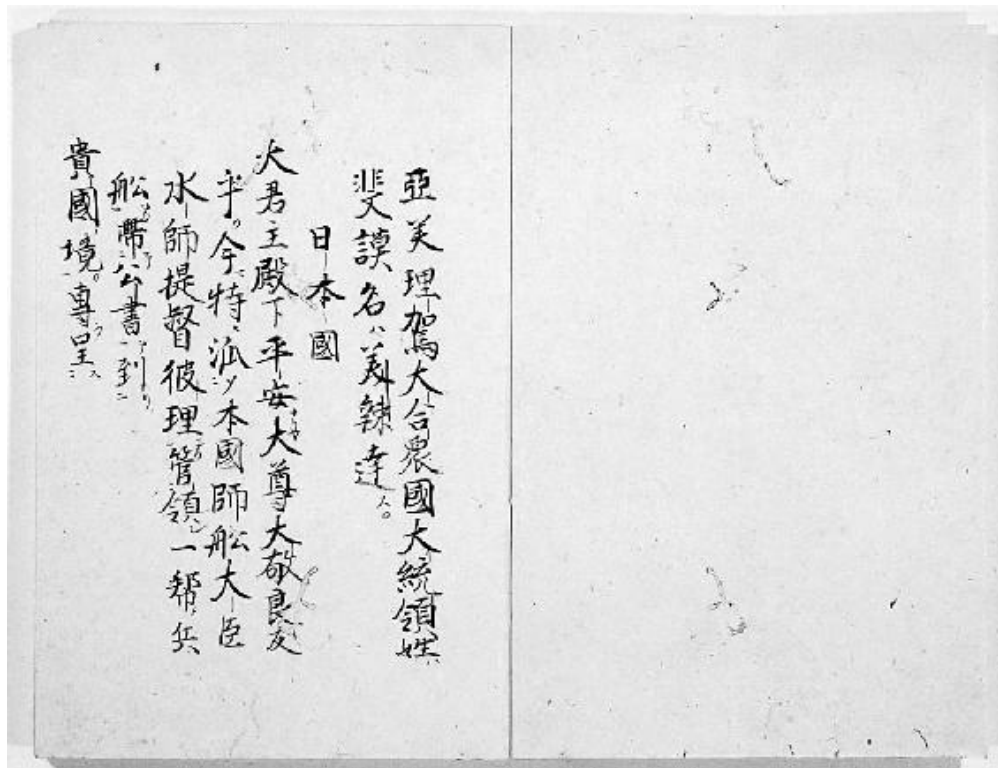 亞美理駕大合衆國大統領姓ハ
斐謨名ハ美辣達人。
日本國
大君主殿下平安大尊大敬良友
乎。今特ニ派ソ本國師船大臣
水師提督彼理管領シ一帮ノ兵
船帶公書到
貴國境。專呈ス